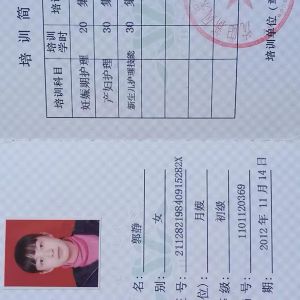 培训简
培训科目 培训学时 培
妊娠期护理 20 集
产妇护理 30 集
新生儿护理技能 30 集
培训单位（
名： 郭静
别： 女
号： 21128219840915282X
位）： 月嫂
级： 初级
号： 1101120369
期： 2012 年 11 月 14 日